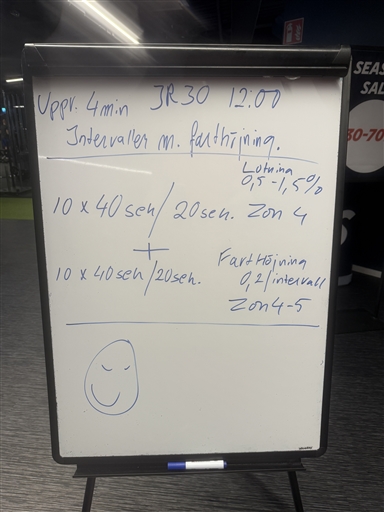 Uppv. 4min JR30 12:00
Intervaller m. farthöjning.
Lutning
0,5-1,5%
10 x 40sek/20sek. Zon 4
+
10 x 40sek/20sek. Farthöjning
0,2/intervall
Zon4-5
SEAS
SAL
30-70